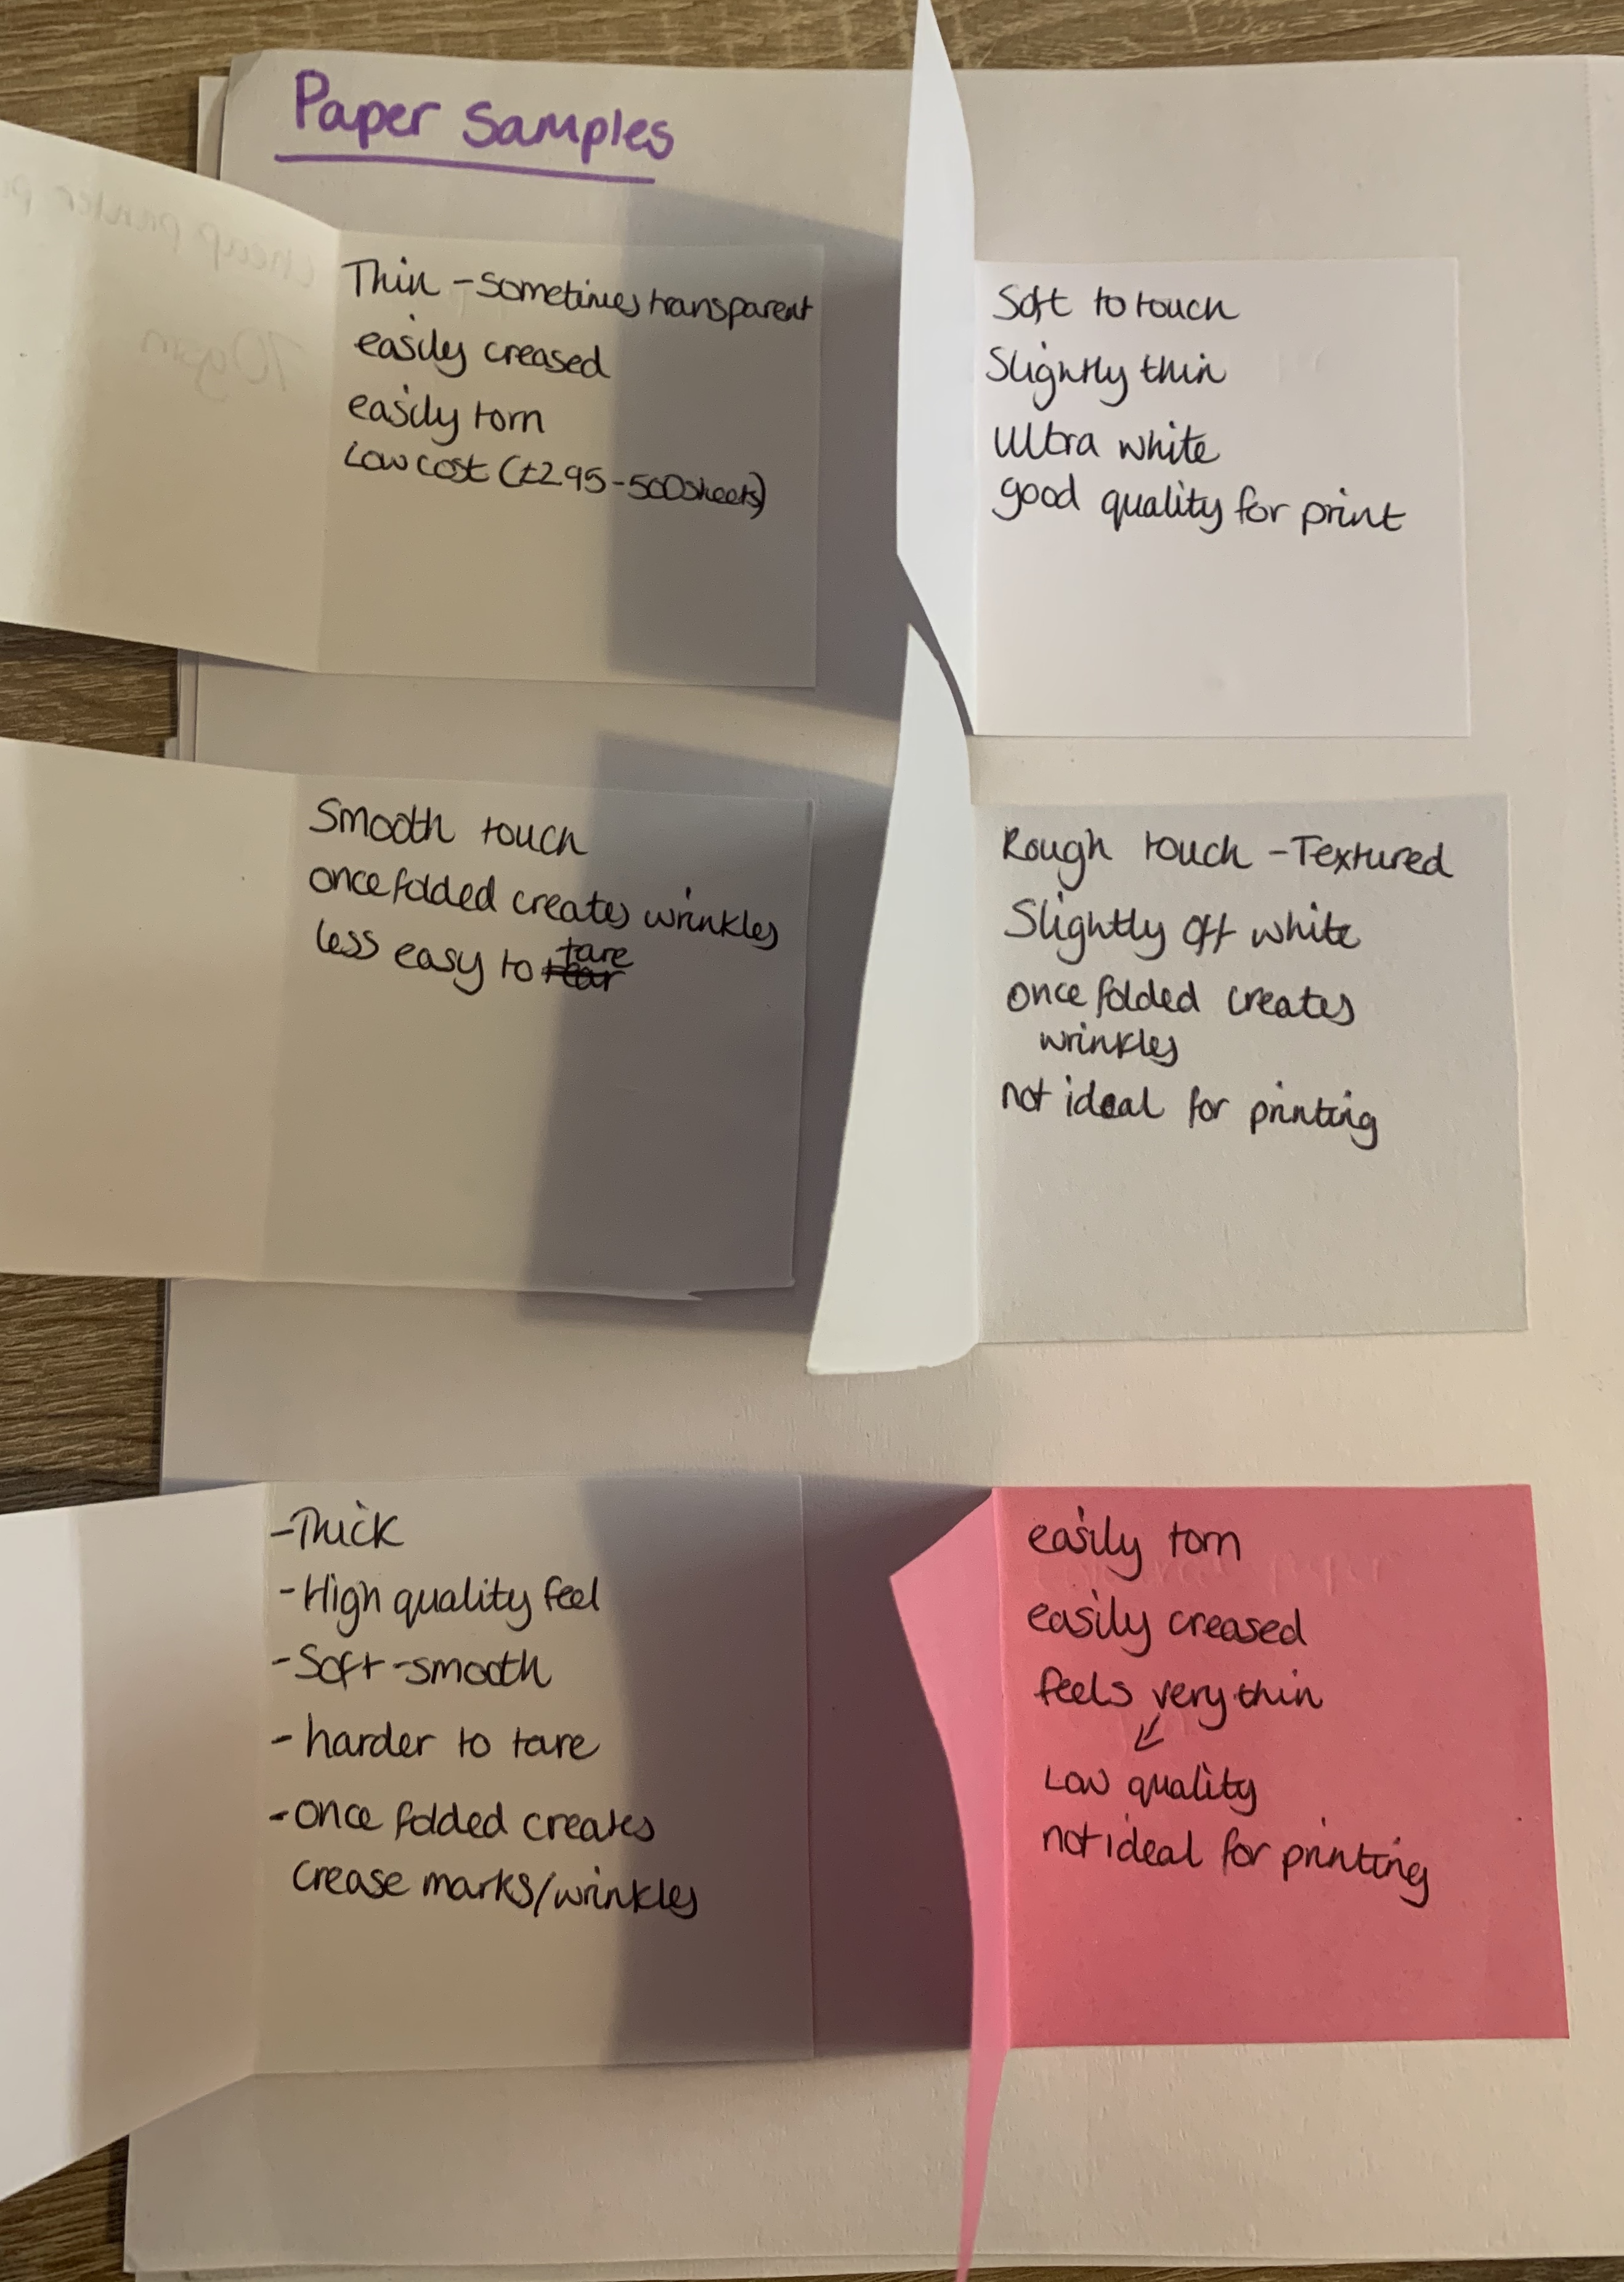 Paper Samples
cheap printer
70gsm
Thin - sometimes transparent
easily creased
easily torn
Low cost (£2.95 - 500 sheets)
Soft to touch
Slightly thin
Ultra white
good quality for print
Smooth touch
once folded creates wrinkles
less easy to tear tare
Rough touch - Textured
Slightly off white
once folded creates
wrinkles
not ideal for printing
- Thick
- High quality feel
- Soft - smooth
- harder to tare
- once folded creates
crease marks/wrinkles
easily torn
easily creased
feels very thin
↙
Low quality
not ideal for printing